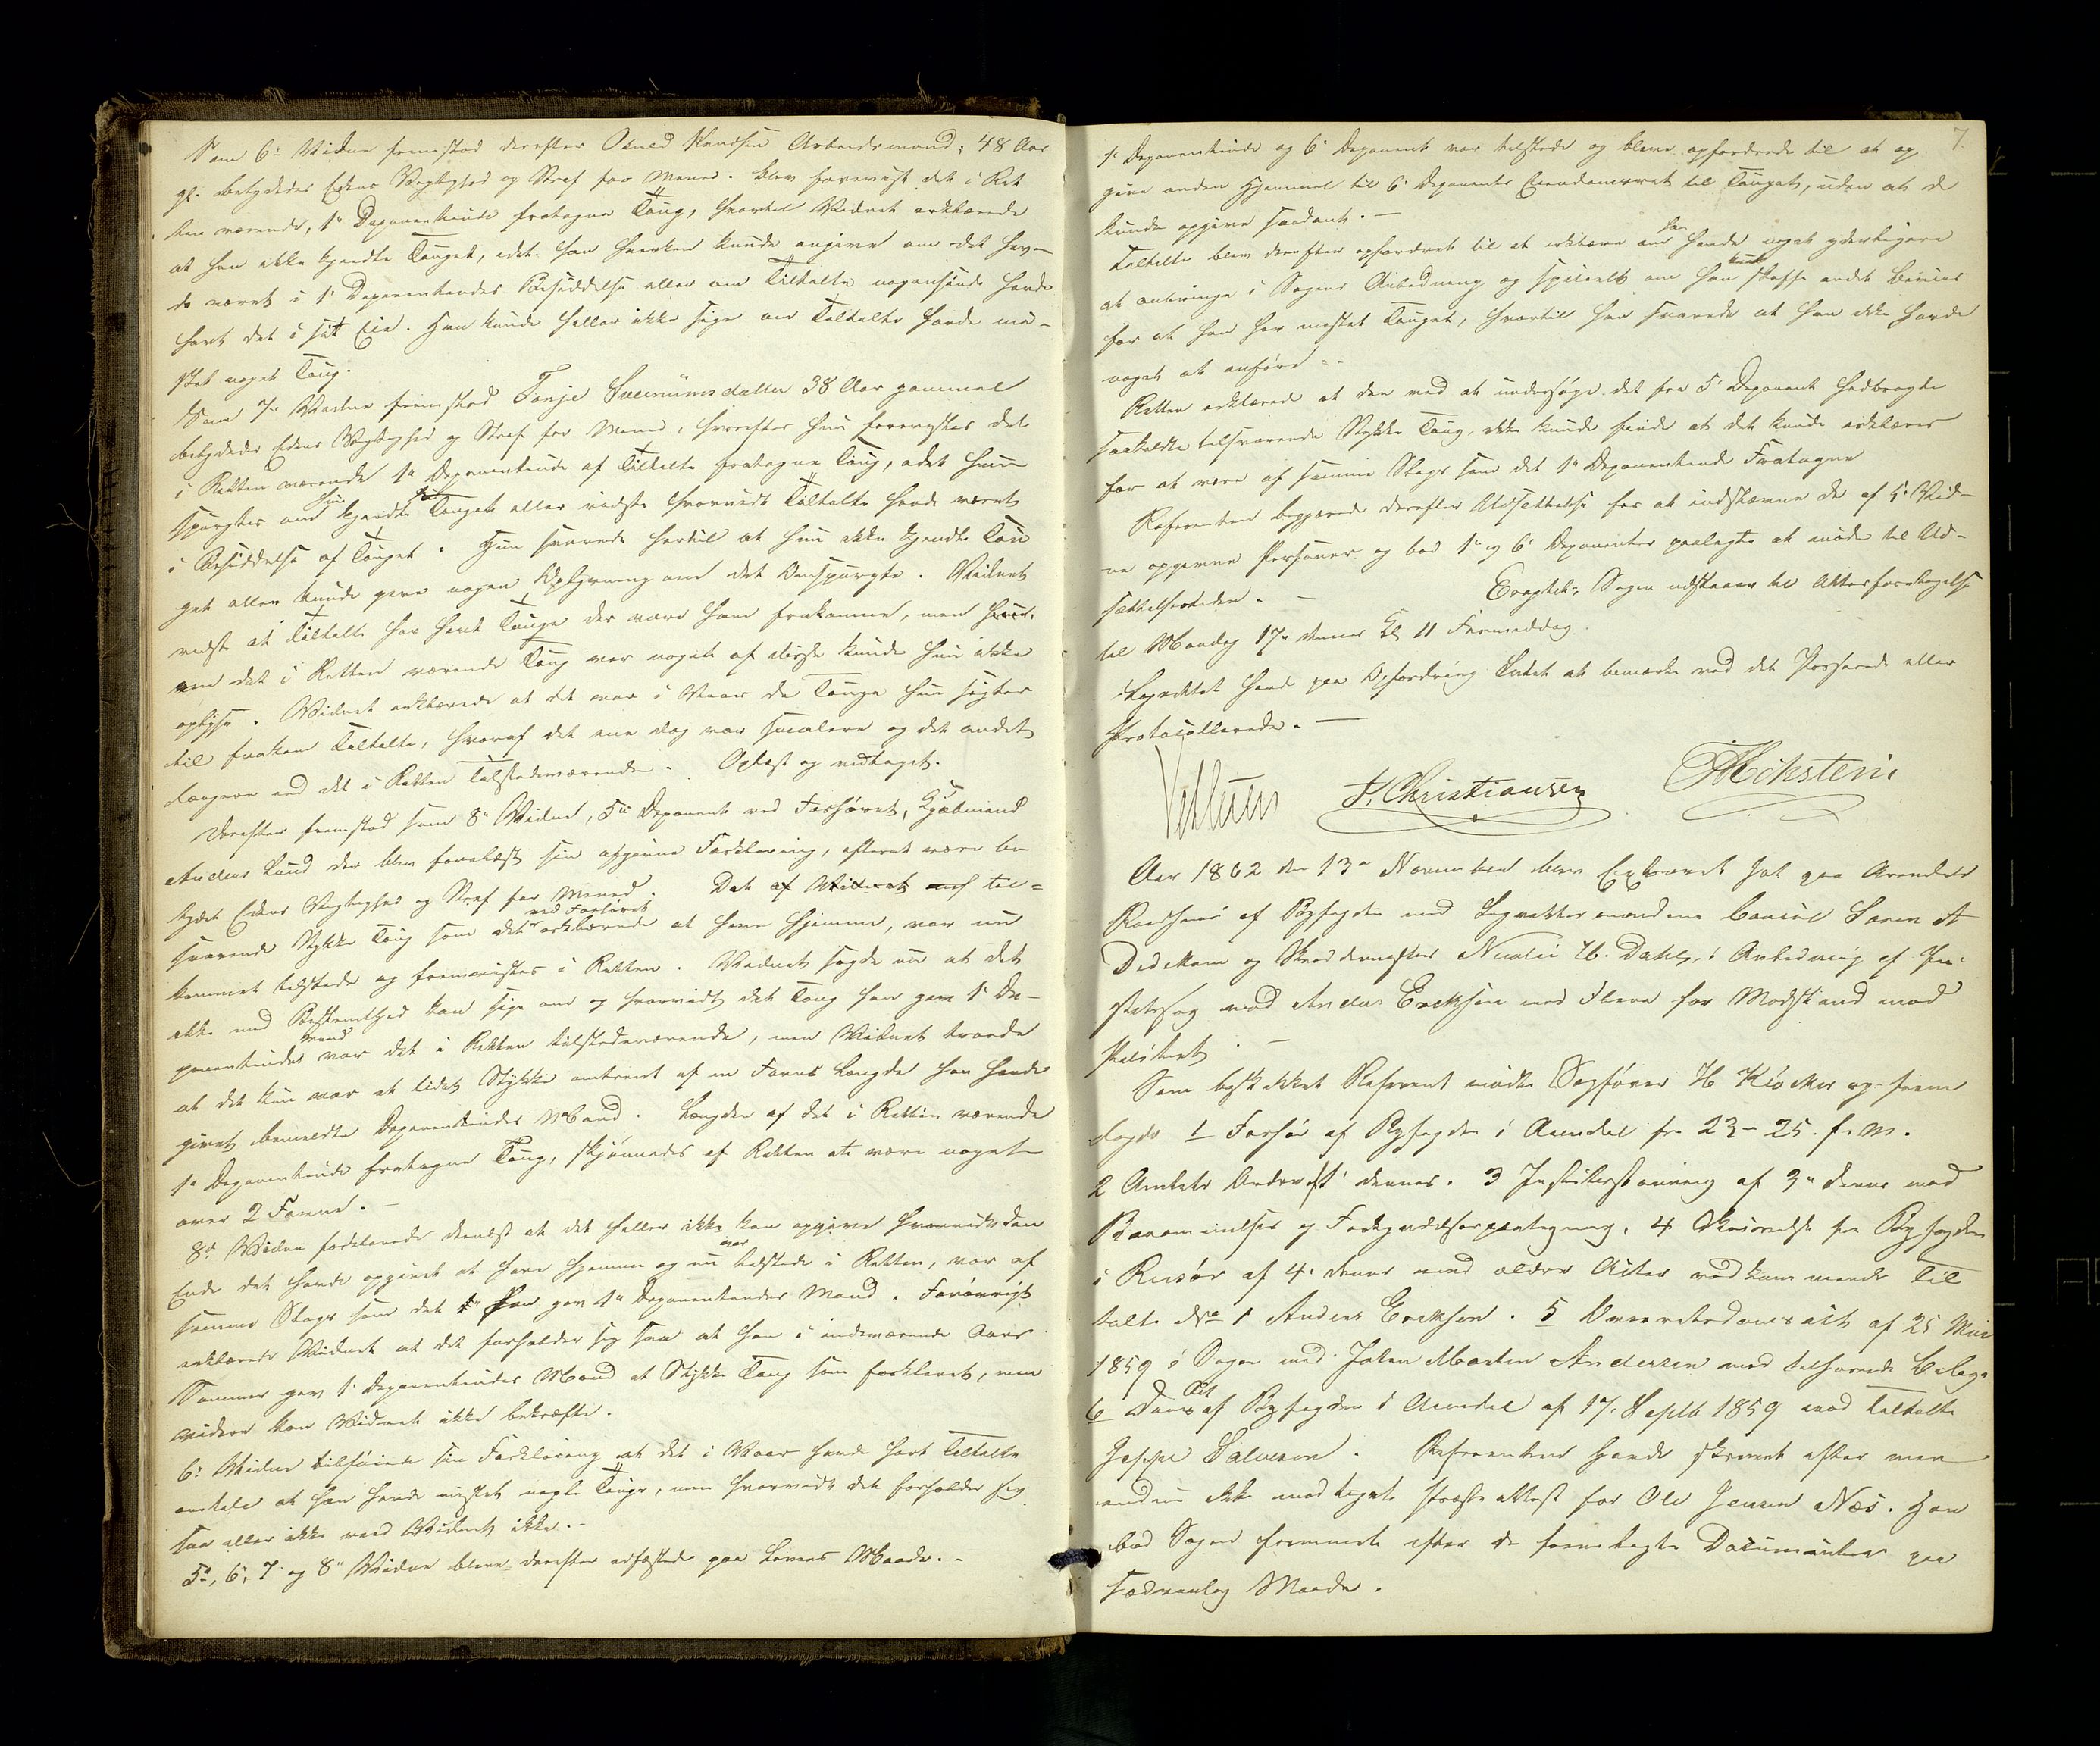 Som 6te Vidne fremstod derefter Osuld Knudsen Arbeidsmand, 48 Aar
gl. betydedes Edens Vigtighed og Straf for Meened. Blev foreviist det i Ret
ten værende, 1e Deponentinde fratagne Toug, hvortil Vidnet erklærede
at han ikke kjendte Touget, idet han hverken kunde angive om det hav-
de været i 1e Deponentindes Besiddelse eller om Tiltalte nogensinde havde
havt det i sit Eie. Han kunde heller ikke sige om Tiltalte havde mi-
stet noget Toug.
Som 7de Vidne fremstod Tonje Sveinumsdatter 38 Aar gammel
betydedes Edens Vigtighed og Straf for Meened, hvorefter hun forevistes det
i Retten værende 1e Deponentinde af Tiltalte fratagne Toug, idet hun
spurgtes om hun kjendte Touget eller vidste hvorvidt Tiltalte havde været
i Besiddelse af Touget. Hun svarede hertil at hun ikke kjendte Tou
get eller kunde give nogen Oplysning om det Omspurgte. Vidnet
vidste at Tiltalte har havt Touge der være ham frakomne, men
om det i Retten værende Toug var noget af disse kunde hun ikke
oplyse. Vidnet erklærede at det var i Vaar de Touge hun sigter
til frakom Tiltalte, hvoraf det ene dog var smalere og det andet
længere end det i Retten Tilstedeværende. Oplæst og vedtaget.
Derefter fremstod som 8de Vidne, 5te Deponent ved Forhøret, Kjøbmand
Anders Lund der blev forelæst sin afgivne Forklaring, efterat være be
tydet Edens Vigtighed og Straf for Meened. Det af Vidnet til-
svarende Stykke Toug som det ved Forhøret erklærede at have hjemme, var nu
kommet tilstede og fremvistes i Retten. Vidnet sagde nu at det
ikke med Bestemthed kan sige om og hvorvidt det Toug han gav 1e De-
ponentindes Mand var det i Retten tilstedeværende, men Vidnet troede
at det kun var et lidet Stykke omtrent af en Favns Længde han havde
givet bemeldte Deponentindes Mand. Længden af det i Retten værende
1e Deponentinde fratagne Toug, skjønnedes af Retten at være noget
over 2 Favne.
8de Vidne forklarede dernæst at det heller ikke kan opgive hvorvidt den
Ende det havde opgivet at have hjemme og nu var tilstede i Retten, var af
samme Slags som det han gav 1e Deponentindes Mand. Forøvrigt
erklærede Vidnet at det forholder sig saa at han i indeværende Aars
Sommer gav 1e Deponentindes Mand et Stykke Toug som forklaret, men
videre kan Vidnet ikke bekræfte.
6te Vidne tilføiede sin Forklaring at det i Vaar havde hørt Tiltalte
omtale at han havde mistet nogle Touge, men hvorvidt det forholder sig
saa eller ikke veed Vidnet ikke.
5te, 6te, 7de og 8de Vidne bleve derefter edfæstede paa Lovens Maade.
7.
1e Deponentinde og 6e Deponent var tilstede og bleve opfordrede til at op
give anden Hjemmel til 6e Deponents Eiendomsret til Touget, uden at de
kunde opgive saadant.
Tiltalte blev derefter opfordret til at erklære om han havde noget yderligere
at anbringe i Sagens Anledning og specielt om han kunde skaffe andet Beviis
for at han har mistet Touget, hvortil han svarede at han ikke havde
noget at anføre.
Retten erklærede at den ved at undersøge det fra 5e Deponent hidbragte
saakaldte tilsvarende Stykke Toug, ikke kunde finde at det kunde erklæres
for at være af samme Slags som det 1e Deponentinde Fratagne
Referenten begjærede derefter Udsættelse for at indstævne de af 5e Vid-
ne opgivne Personer og bad 1e og 6e Deponenter paalagte at møde til Ud-
sættelsestiden.
Eragtet: Sagen udstaaer til Atterforetagelse
til Mandag 17de dennes Kl 11 Formiddag.
Lagrettet havde paa Opfordring Intet at bemærke ved det Passerede eller
Protocollerede.
F. Christiansen
Aar 1862 den 13de November blev Extraret sat paa Arendals
Raadhuus af Byfogden med Lagrettesmændene Consul Søren A
Dedekam og Skræddermester Nicolai H. Dahl, i Anledning af Ju-
stitssag mod Anders Ericksen med Flere for Modstand mod
Politiet.
Som beskikket Referent mødte Sagfører H Klocker og frem
lagde 1 Forhør af Byfogden i Arendal fra 23 - 25 f. M.
2 Amtets Andordr. dennes. 3 Justitsstævning af 3de dennes med
Berammelses og Forkyndelsespaategning, 4 Skrivelse fra Byfogden
i Risør af 4de dennes med ældre Acter vedkommende Til
talte No 1 Anders Ericksen. 5 Overretsdomsact af 25 Mai
1859 i Sagen mod Johan Morten Andersen med tilhørende Bilage
6 Doms Act af Byfogden i Arendal af 17. Septb 1859 mod Tiltalte
Jeppe Salvesen. Referenten havde skrevet efter men
endnu ikke modtaget Præsteattest for Ole Jensen Næs. Han
bad Sagen fremmet efter de fremlagte Documenter paa
sædvanlig Maade.